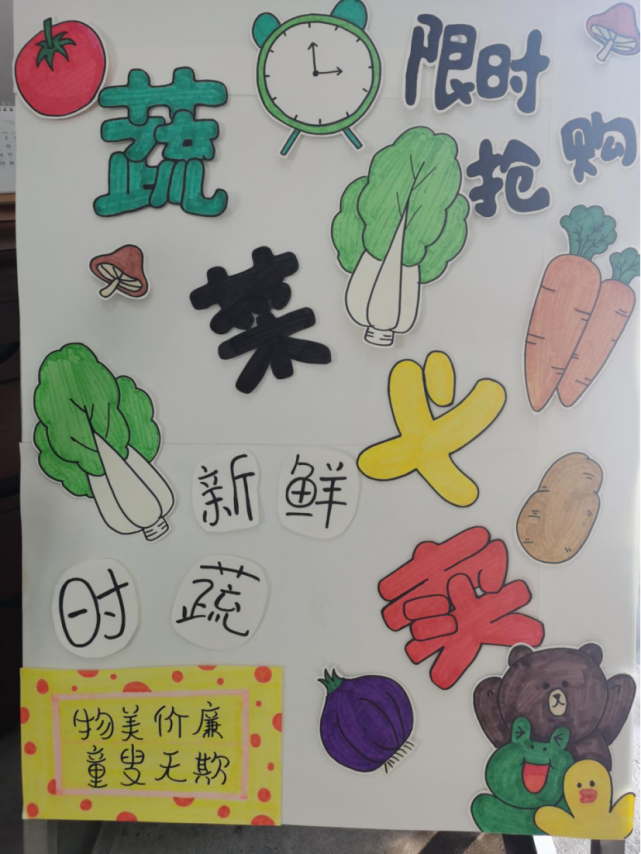 限时
抢购
蔬
菜
义
卖
新鲜
时蔬
物美价廉
童叟无欺